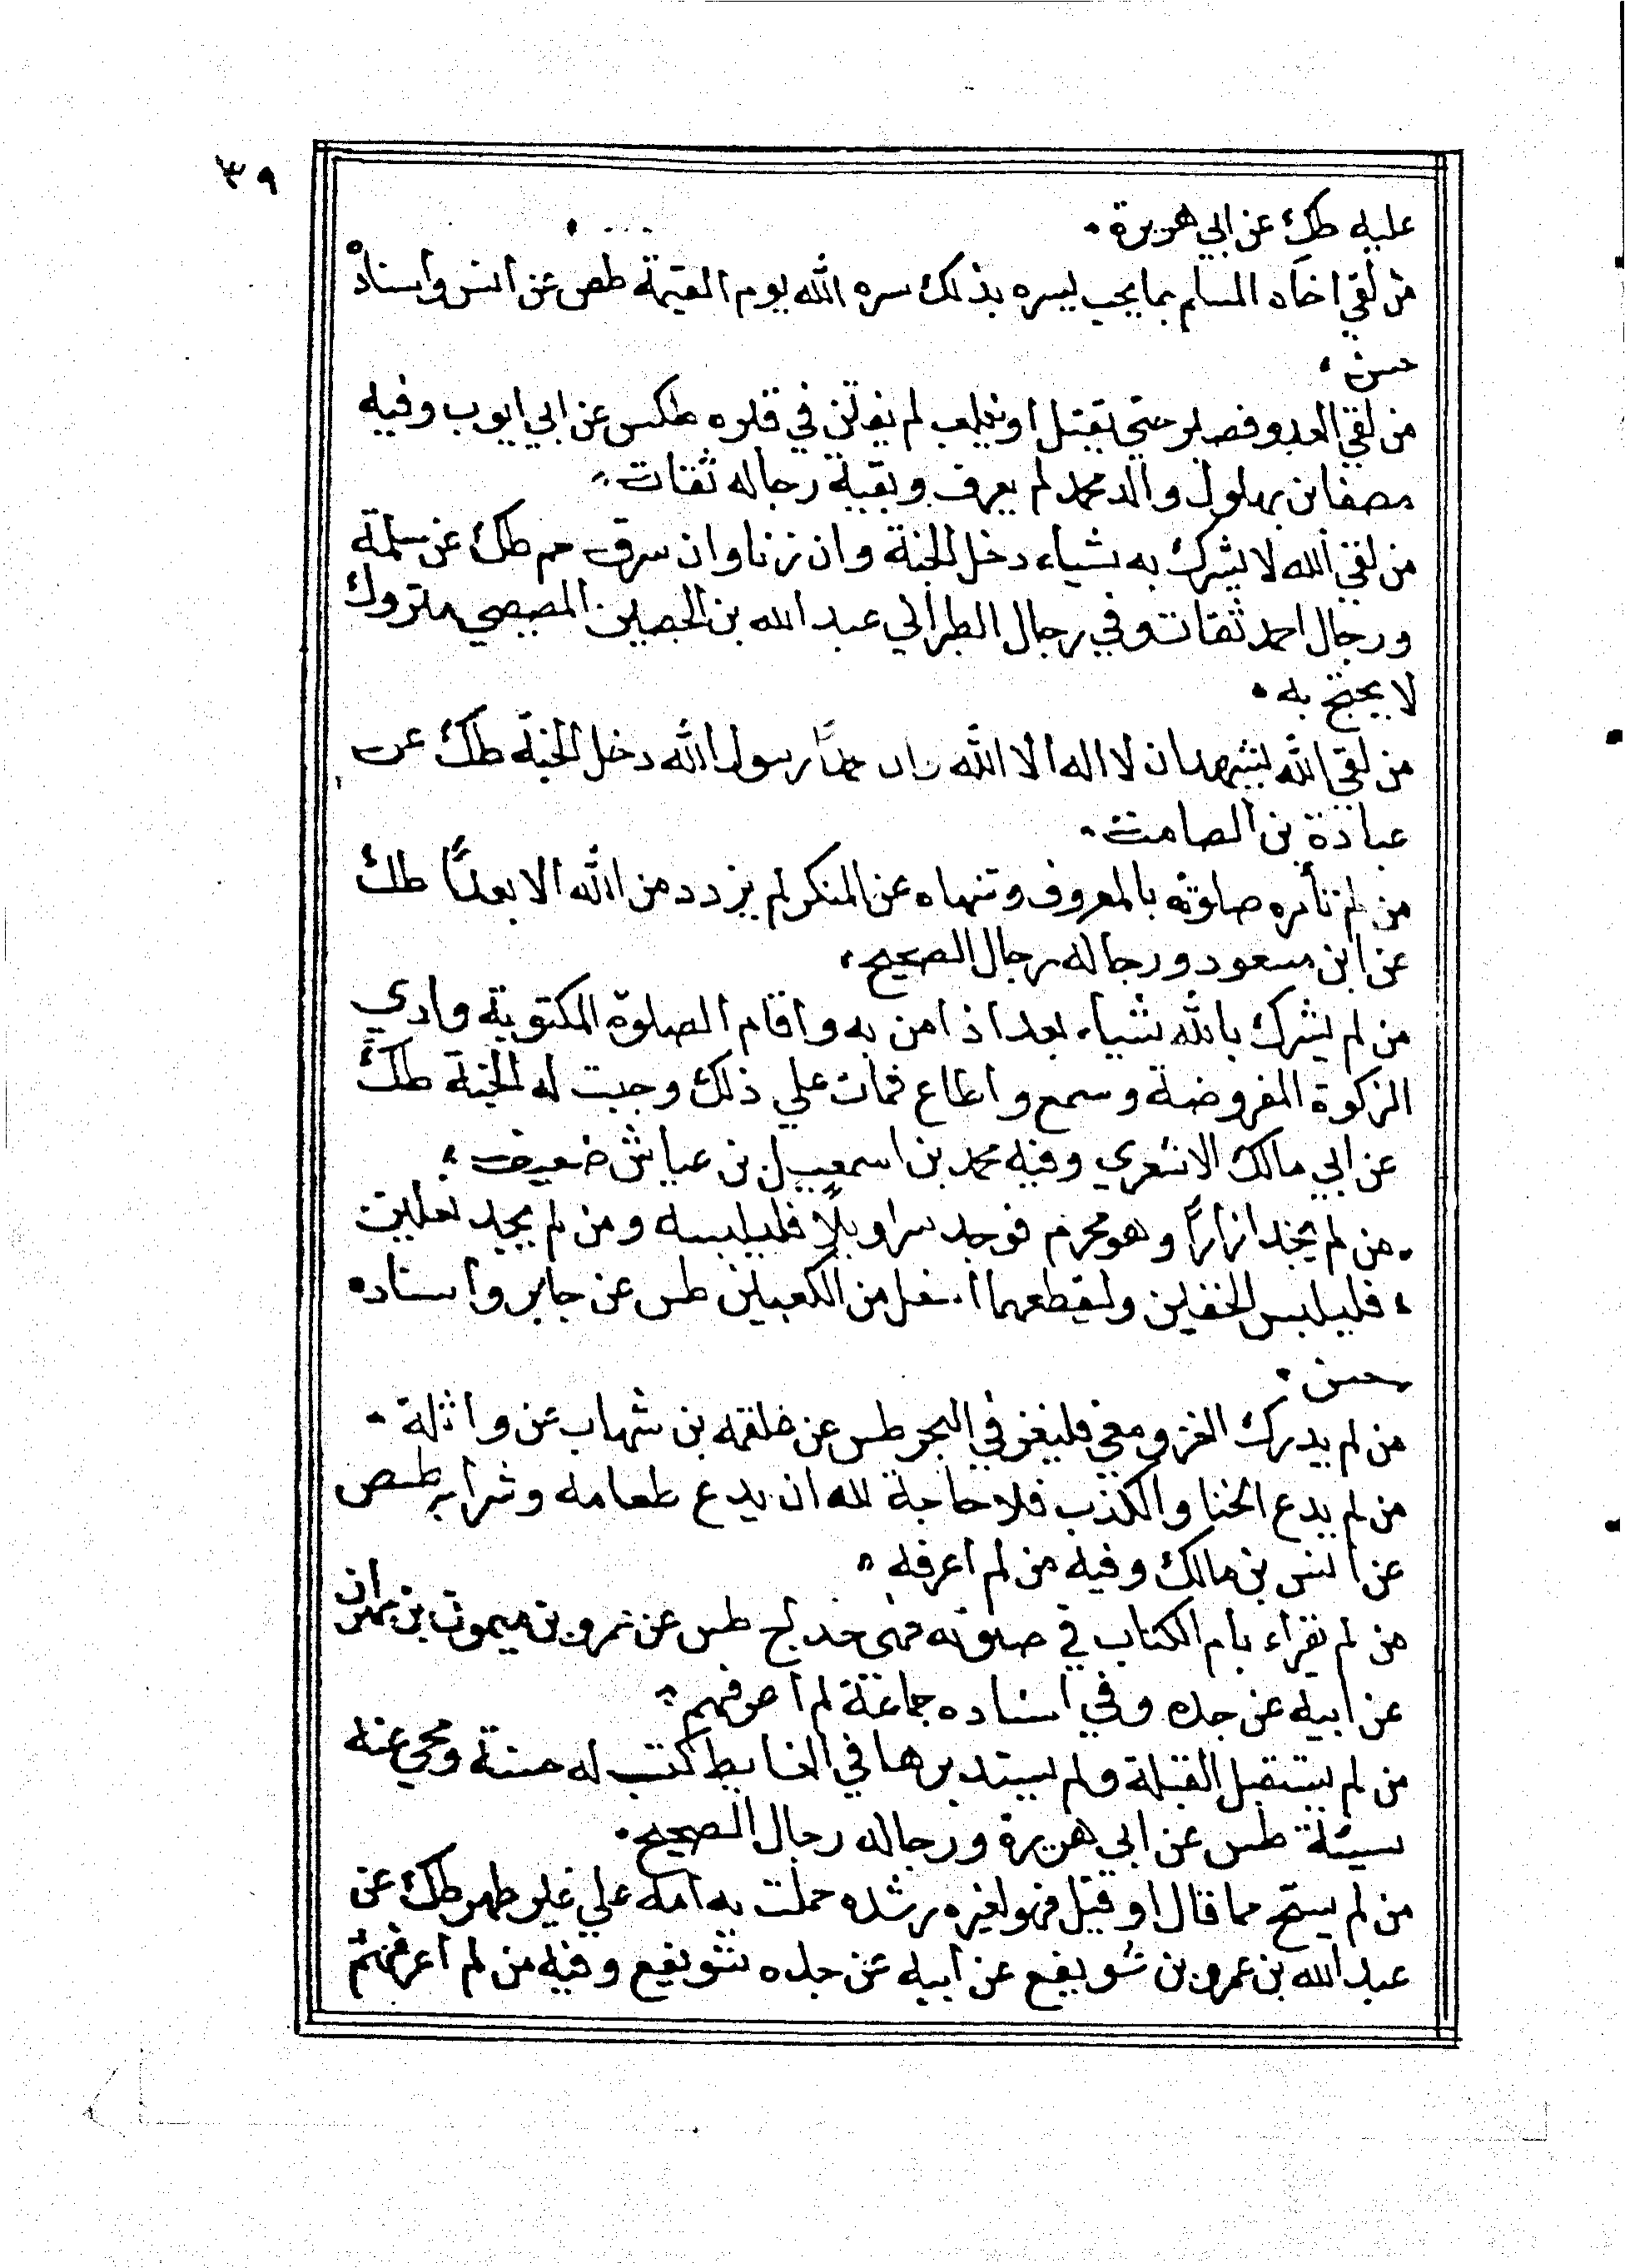 ٣٩
عليه طك عن ابي هريرة
من لقي اخاه المسلم بما يحب ليسره بذلك سره الله يوم القيمة طص عن انس واسناده
حسن
من لقي العدو فصبر حتى يقتل او يغلب لم يفتن في قبره طكس عن ابي ايوب وفيه
مصفا بن بهلول والد محمد لم يعرف وبقية رجاله ثقات
من لقي الله لا يشرك به شياء دخل الجنة وان زنا وان سرق حم طك عن سلمة
ورجال احمد ثقات وفي رجال الطبراني عبد الله بن الحصين المصيصي متروك
لا يحتج به
من لقي الله يشهد ان لا اله الا الله وان محمدًا رسول الله دخل الجنة طك عن
عبادة بن الصامت
من لم تأمره صلوته بالمعروف وتنهاه عن المنكر لم يزدد من الله الا بعدًا طك
عن ابن مسعود ورجاله رجال الصحيح
من لم يشرك بالله شياء بعد اذ امن به واقام الصلوة المكتوبة وادي
الزكوة المفروضة وسمع واطاع فمات علي ذلك وجبت له الجنة طك
عن ابي مالك الاشعري وفيه محمد بن اسمعيل بن عياش ضعيف
من لم يجد ازارًا وهو محرم فوجد سراويلًا فليلبسه ومن لم يجد نعلين
فليلبس الخفين وليقطعهما اسفل من الكعبين طس عن جابر واسناده
حسن
من لم يدرك الغزو معي فليغز في البحر طس عن علقمه بن شهاب عن واثلة
من لم يدع الخنا والكذب فلا حاجة لله ان يدع طعامه وشرابه طسص
عن انس بن مالك وفيه من لم اعرفه
من لم يقراء بام الكتاب في صلوته فهى خداج طس عن عمرو بن ميمون بن مهران
عن ابيه عن جده وفي اسناده جماعة لم اعرفهم
من لم يستقبل القبلة ولم يستدبرها في الغايط كتب له حسنة ومحي عنه
سيئة طس عن ابي هريرة ورجاله رجال الصحيح
من لم يستح مما قال او قيل فهو لغيره رشده حملت به امه علي غير طهر طك عن
عبد الله بن عمرو بن شويفع عن ابيه عن جده شويفع وفيه من لم اعرفهم